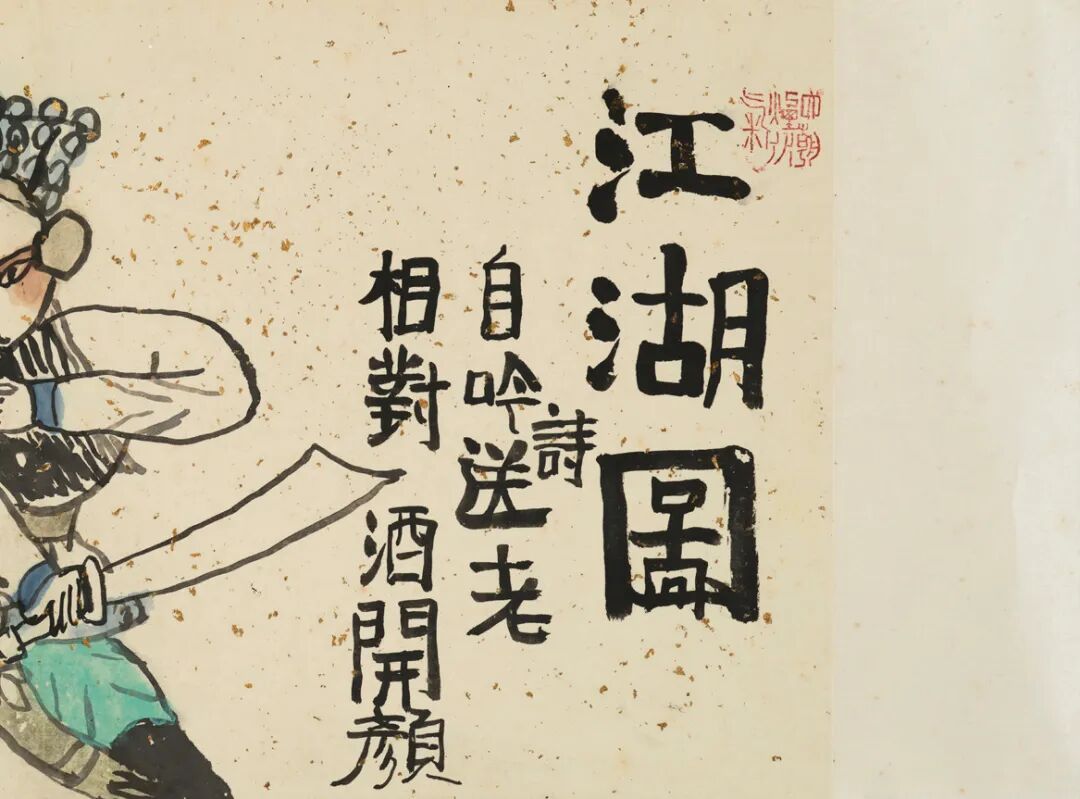 江湖圖
自吟詩送老
相對酒開顏